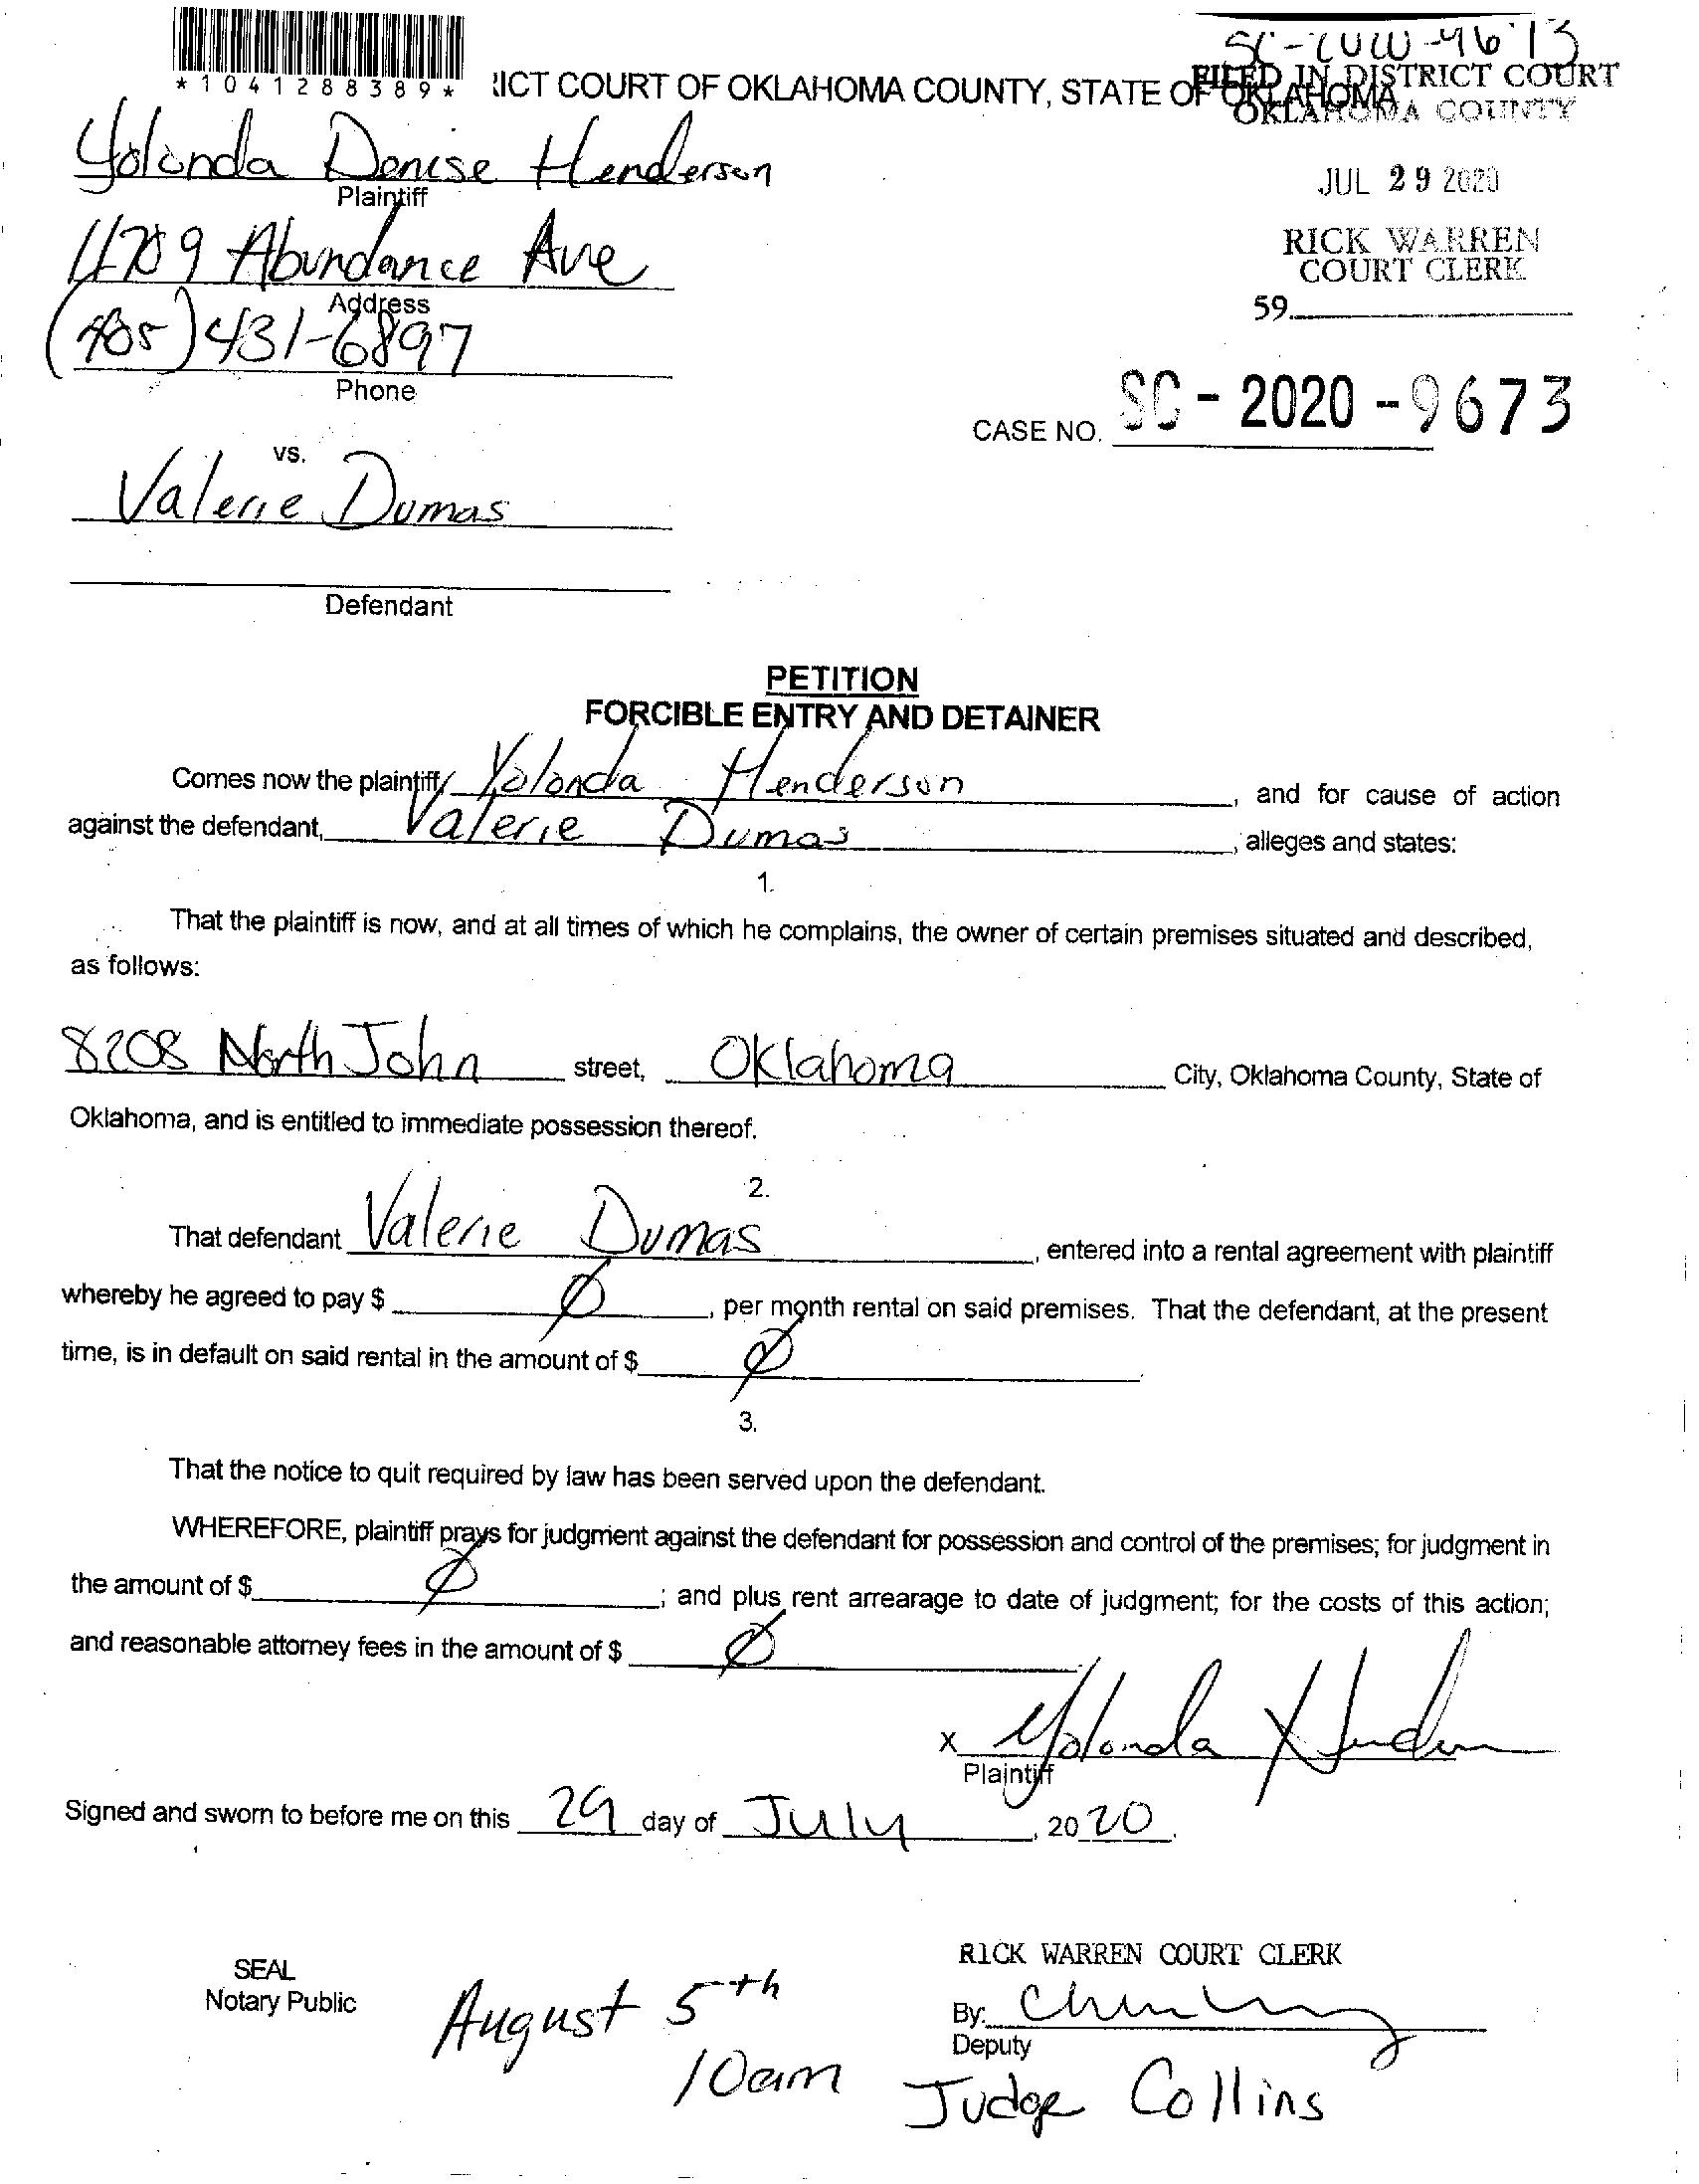 SC-
*1041288389*
ICT COURT OF OKLAHOMA COUNTY, STATE OF OKLAHOMA
FILED IN DISTRICT COURT
OKLAHOMA COUNTY
Yolonda Denise Henderson
Plaintiff
JUL 29 2020
Abundance Ave
Address
RICK WARREN
COURT CLERK
59.
(405) 431-6897
Phone
CASE NO. SC - 2020 - 9673
vs.
Valerie Dumas
Defendant
PETITION
FORCIBLE ENTRY AND DETAINER
Comes now the plaintiff, Yolonda Henderson, and for cause of action
against the defendant, Valerie Dumas, alleges and states:
1.
That the plaintiff is now, and at all times of which he complains, the owner of certain premises situated and described,
as follows:
8208 North John street, Oklahoma City, Oklahoma County, State of
Oklahoma, and is entitled to immediate possession thereof.
2.
That defendant Valerie Dumas, entered into a rental agreement with plaintiff
whereby he agreed to pay $ Ø, per month rental on said premises. That the defendant, at the present
time, is in default on said rental in the amount of $ Ø
3.
That the notice to quit required by law has been served upon the defendant.
WHEREFORE, plaintiff prays for judgment against the defendant for possession and control of the premises; for judgment in
the amount of $ Ø; and plus rent arrearage to date of judgment; for the costs of this action;
and reasonable attorney fees in the amount of $ Ø
x Yolonda Henderson
Plaintiff
Signed and sworn to before me on this 29 day of July, 2020.
RICK WARREN COURT CLERK
SEAL
Notary Public
By:
Deputy
August 5th
10am
Judge Collins